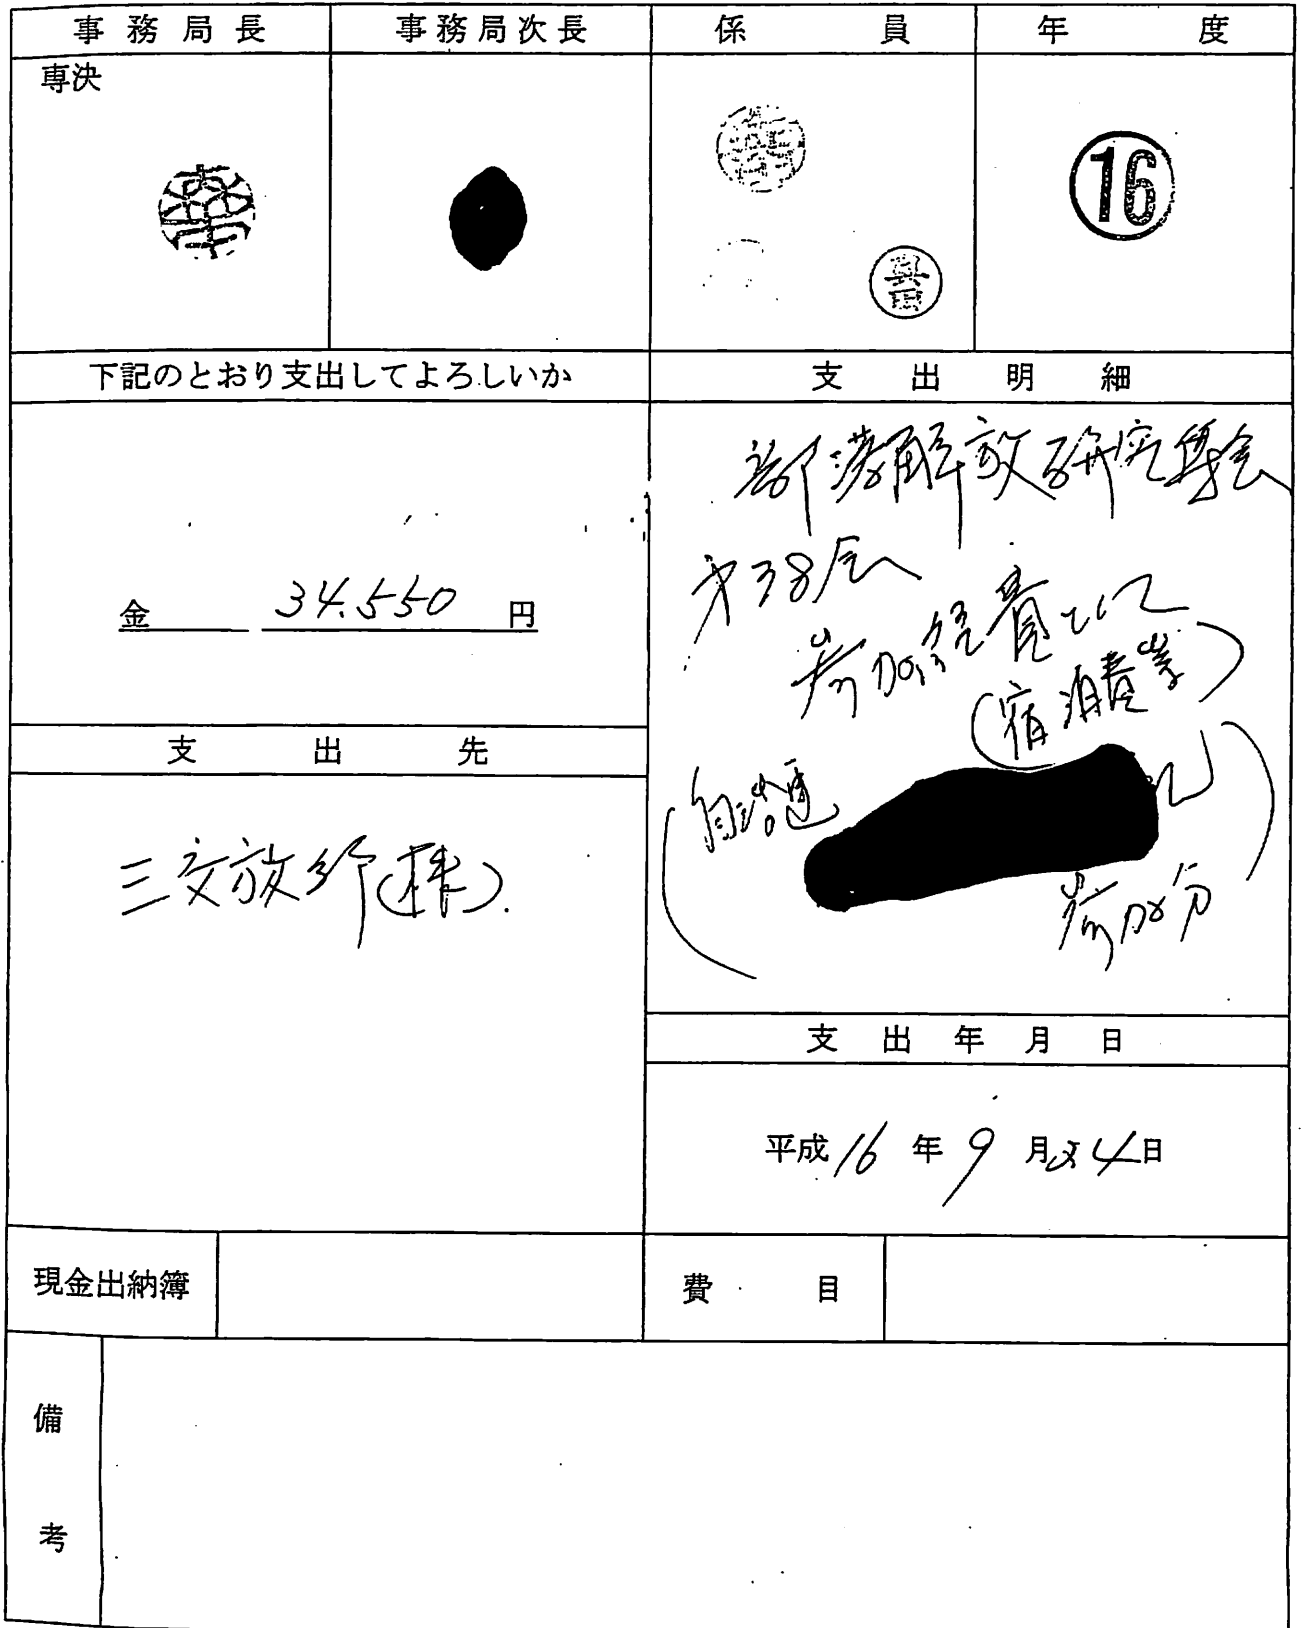 事務局長 事務局次長 係員 年度
専決
16
下記のとおり支出してよろしいか
支出明細
金 34.550 円
部落解放研究集会
才38回
参加経費として
(宿泊費等)
(自治連
参加分)
支出先
三交旅行(株).
支出年月日
平成16年9月24日
現金出納簿
費目
備考